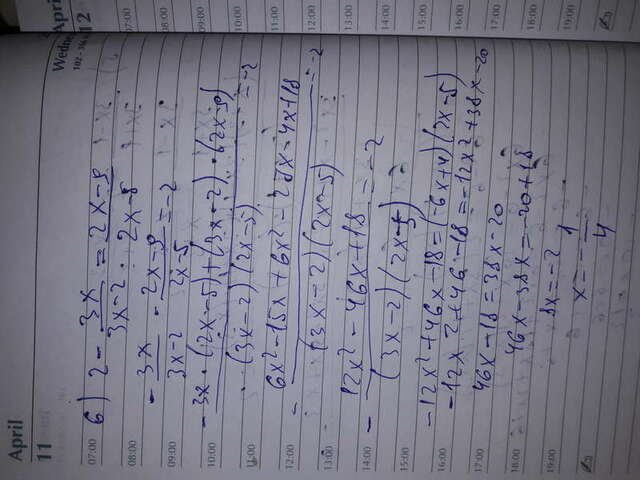 April
11
Wednesday
April
12
102-264
6) 2 - 3x/(3x-2) = (2x-9)/(2x-5)
- 3x/(3x-2) - (2x-9)/(2x-5) = -2
- (3x·(2x-5)+(3x-2)·(2x-9))/((3x-2)(2x-5)) = -2
- (6x²-15x+6x²-27x-4x+18)/((3x-2)(2x-5)) = -2
- (12x²-46x+18)/((3x-2)(2x-5)) = -2
-12x²+46x-18=(-6x+4)(2x-5)
-12x²+46x-18=-12x²+38x-20
46x-18=38x-20
46x-38x=-20+18
8x=-2
x=-1/4
07:00
08:00
09:00
10:00
11:00
12:00
13:00
14:00
15:00
16:00
17:00
18:00
19:00
07:00
08:00
09:00
10:00
11:00
12:00
13:00
14:00
15:00
16:00
17:00
18:00
19:00